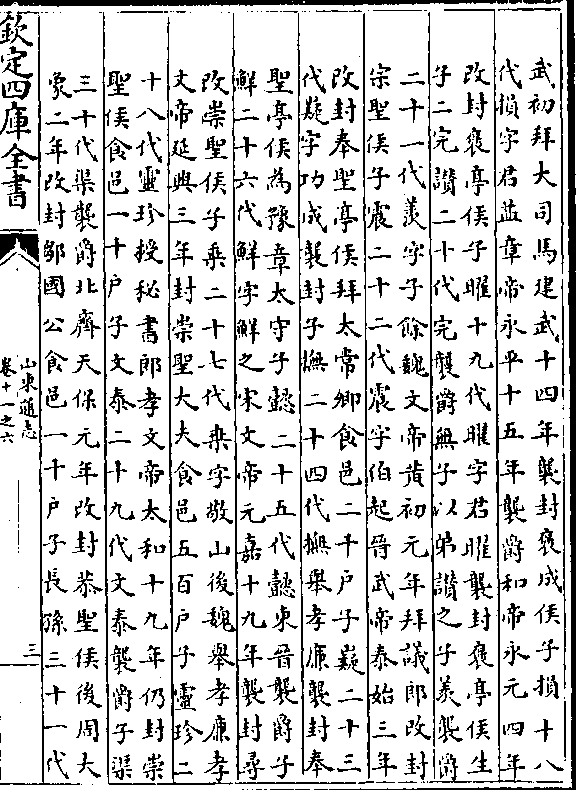 武初拜大司馬建武十四年襲封褒成侯子損十八
代損字君益章帝永平十五年襲爵和帝永元四年
改封褒亭侯子曜十九代曜字君曜襲封褒亭侯生
子二完讃二十代完襲爵無子以弟讃之子羨襲爵
二十一代羨字子餘魏文帝黄初元年拜議郎改封
宗聖侯子震二十二代震字伯起晉武帝泰始三年
改封奉聖亭侯拜太常卿食邑二千户子嶷二十三
代嶷字功成襲封子撫二十四代撫舉孝廉襲封奉
聖亭侯為豫章太守子懿二十五代懿東晉襲爵子
鮮二十六代鮮字鮮之宋文帝元嘉十九年襲封尋
改崇聖侯子乗二十七代乗字敬山後魏舉孝廉孝
文帝延興三年封崇聖大夫食邑五百户子靈珍二
十八代靈珍授秘書郎孝文帝太和十九年仍封崇
聖侯食邑一十户子文泰二十九代文泰襲爵子渠
三十代渠襲爵北齊天保元年改封恭聖侯後周大
象二年改封鄒國公食邑一千户子長孫三十一代
欽定四庫全書
山東通志
卷十一之六
三